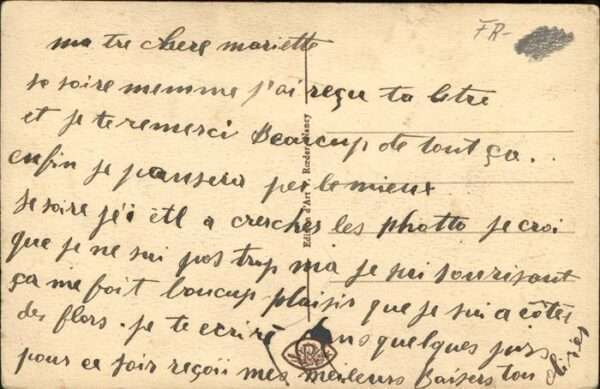 FR-
ma tre chere mariette
se soire memme j'ai reçu ta letre
et je te remerci Beaucup de tout ça..
enfin je pansera per le mieux
se soire j'é été a crercher les photto je croi
que je ne sui pos trup ma je sui sourisant
ça me fait boucup plaisir que je sui a côtés
des flors. je te ecriré dans quelques jurs
pour ce soir reçoii mes meileurs Baisers ton
Edition d'Art Nancy